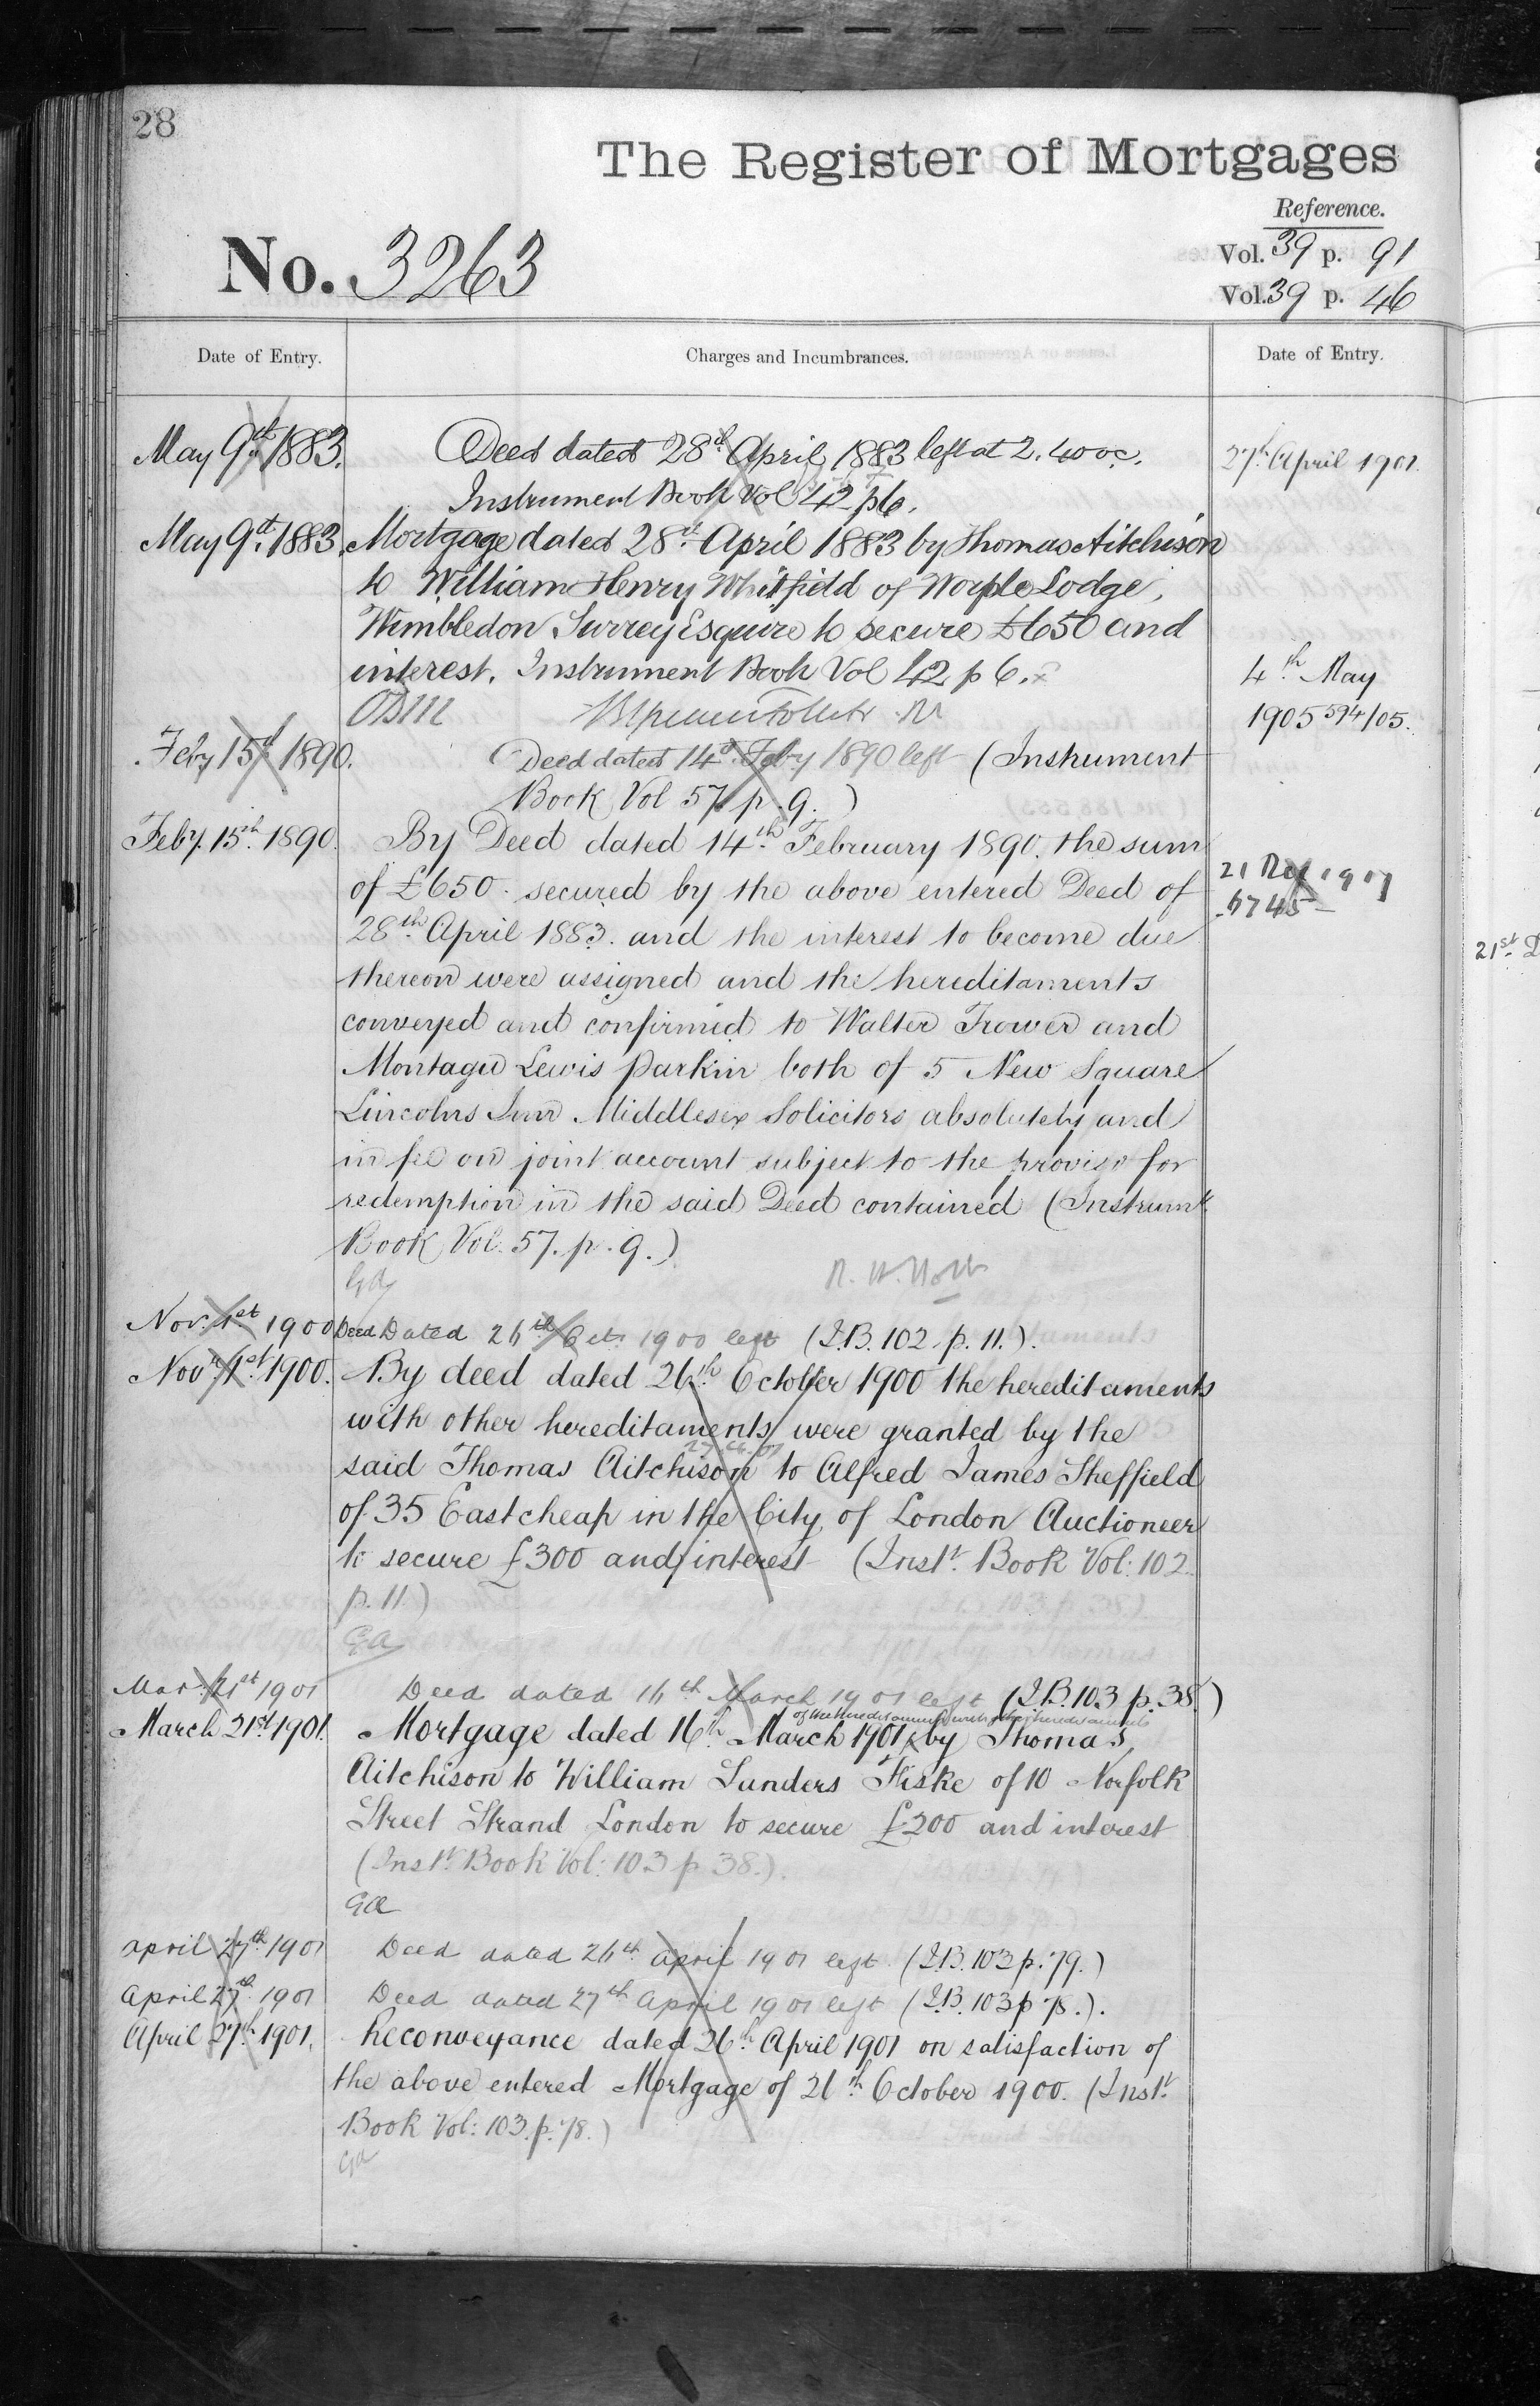 28
The Register of Mortgages
Reference.
No. 3263
Vol. 39 p. 91
Vol. 39 p. 46
Date of Entry.
Charges and Incumbrances.
Date of Entry.
May 9th 1883. Deed dated 28th April 1883 left at 2.40 oc.
Instrument Book Vol 42 p6.
27th April 1901.
May 9th 1883. Mortgage dated 28th April 1883 by Thomas Aitchison
to William Henry Whitfield of Worple Lodge,
Wimbledon Surrey Esquire to secure £650 and
interest. Instrument Book Vol 42 p 6.
4th May
1905 594/05.
Feby 15th 1890. Deed dated 14th Feby 1890 left (Instrument
Book Vol 57. p. 9.)
Feby. 15th 1890. By Deed dated 14th February 1890. the sum
of £650. secured by the above entered Deed of
28th April 1883. and the interest to become due
thereon were assigned and the hereditaments
conveyed and confirmed to Walter Trower and
Montagu Lewis Parkin both of 5 New Square
Lincolns Inn Middlesex Solicitors absolutely and
in fee on joint account subject to the proviso for
redemption in the said Deed contained (Instrumt
Book Vol. 57. p. 9.)
21st D
Nov. 1st 1900 Deed Dated 26th Oct. 1900 left (I.B. 102. p. 11.).
Novr. 1st 1900. By deed dated 26th October 1900 the hereditaments
with other hereditaments were granted by the
said Thomas Aitchison to Alfred James Sheffield
of 35 Eastcheap in the City of London Auctioneer
to secure £300 and interest (Instt. Book Vol: 102.
p. 11.)
Ga
Mar. 21st 1901 Deed dated 16th March 1901 left (I.B. 103 p. 38.)
of the hereditaments with other hereditaments
March 21st 1901. Mortgage dated 16th March 1901 by Thomas
Aitchison to William Sunders Fiske of 10 Norfolk
Street Strand London to secure £200 and interest
(Instt. Book Vol: 103 p 38.).
Ga
April 27th 1901 Deed dated 26th April 1901 left (I.B. 103 p. 79.)
April 27th 1901 Deed dated 27th April 1901 left (I.B. 103 p 78.).
April 27th 1901. Reconveyance dated 26th April 1901 on satisfaction of
the above entered Mortgage of 26th October 1900. (Instt.
Book Vol: 103. p. 78.)
Ga